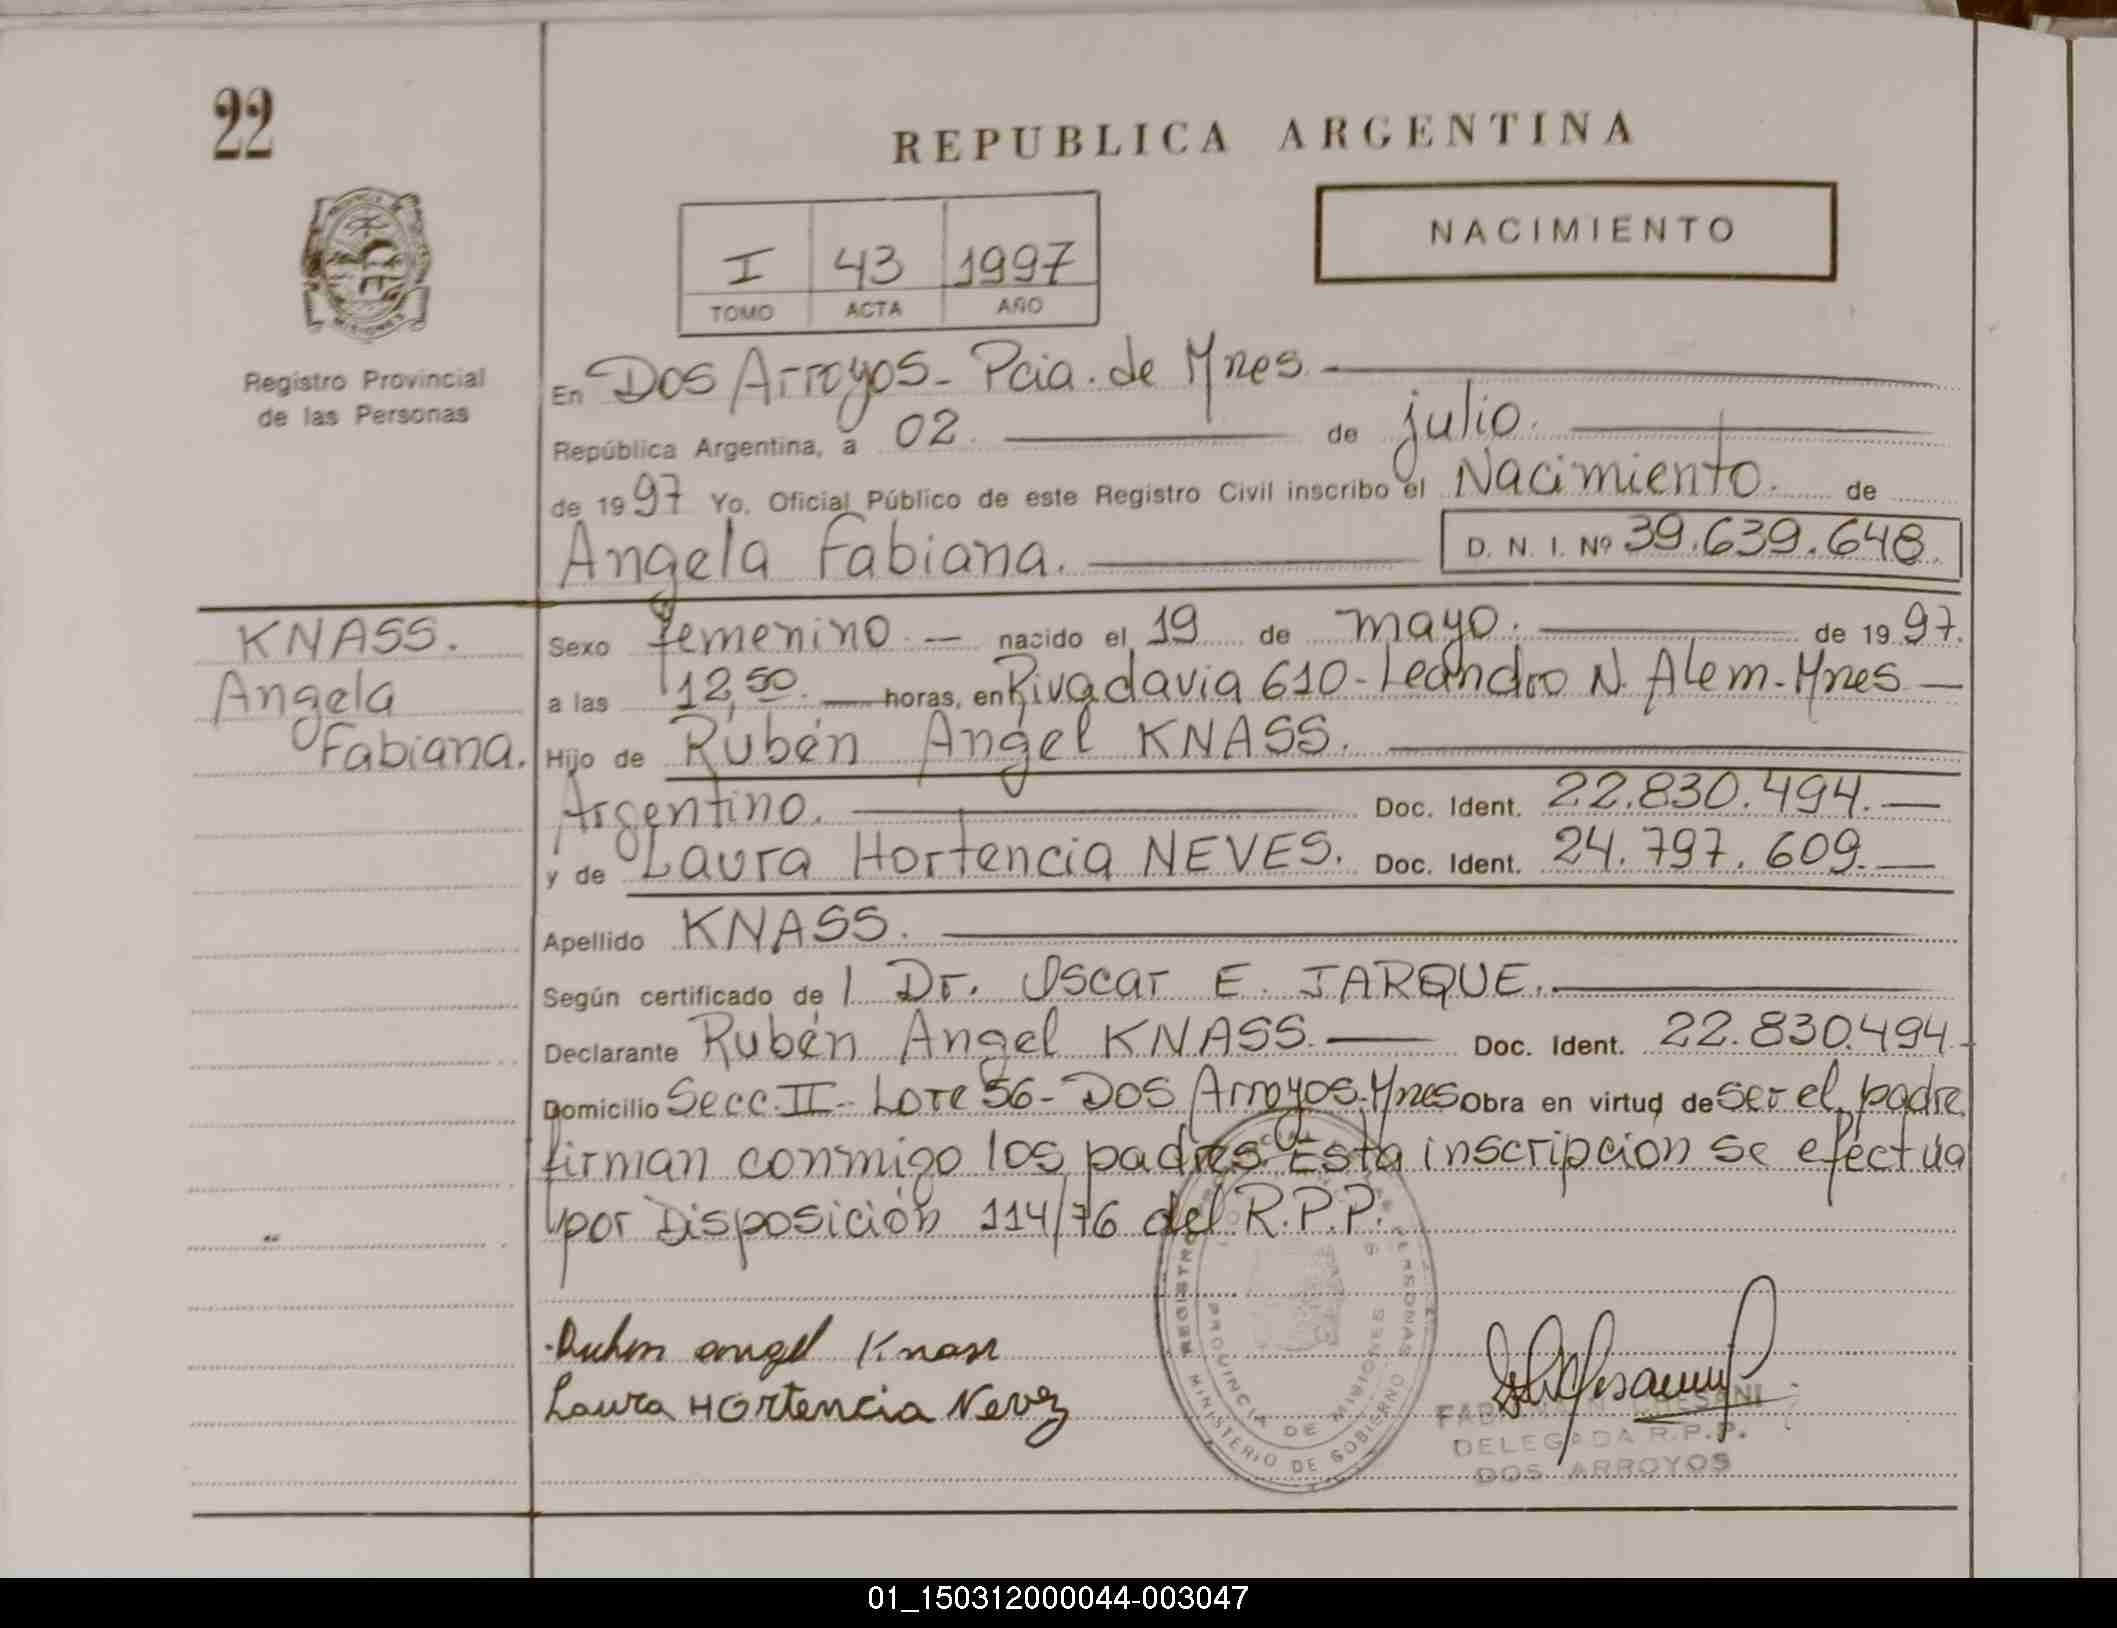 22
REPUBLICA ARGENTINA
NACIMIENTO
I 43 1997
TOMO ACTA AÑO
MISIONES
Registro Provincial
de las Personas
En Dos Arroyos - Pcia. de Mnes
República Argentina, a 02 de julio.
de 1997 Yo, Oficial Público de este Registro Civil inscribo el Nacimiento. de
Angela Fabiana. D. N. I. Nº 39.639.648.
KNASS.
Angela
Fabiana.
Sexo femenino. nacido el 19 de mayo. de 1997.
a las 12,50. horas, en Rivadavia 610 - Leandro N. Alem - Mnes
Hijo de Rubén Angel KNASS.
Argentino. Doc. Ident. 22.830.494.
y de Laura Hortencia NEVES. Doc. Ident. 24.797.609.
Apellido KNASS.
Según certificado de l Dr. Oscar E. JARQUE.
Declarante Rubén Angel KNASS. Doc. Ident. 22.830.494
Domicilio Secc. II - Lote 56 - Dos Arroyos - Mnes Obra en virtud de ser el padre
firman conmigo los padres Esta inscripción se efectúa
por Disposición 114/76 del R.P.P.
Ruben angel Knass
Laura Hortencia Nevez
REGISTRO PERSONAS
PROVINCIA DE MISIONES
MINISTERIO DE GOBIERNO
DELEGADA R.P.P.
DOS ARROYOS
01_150312000044-003047